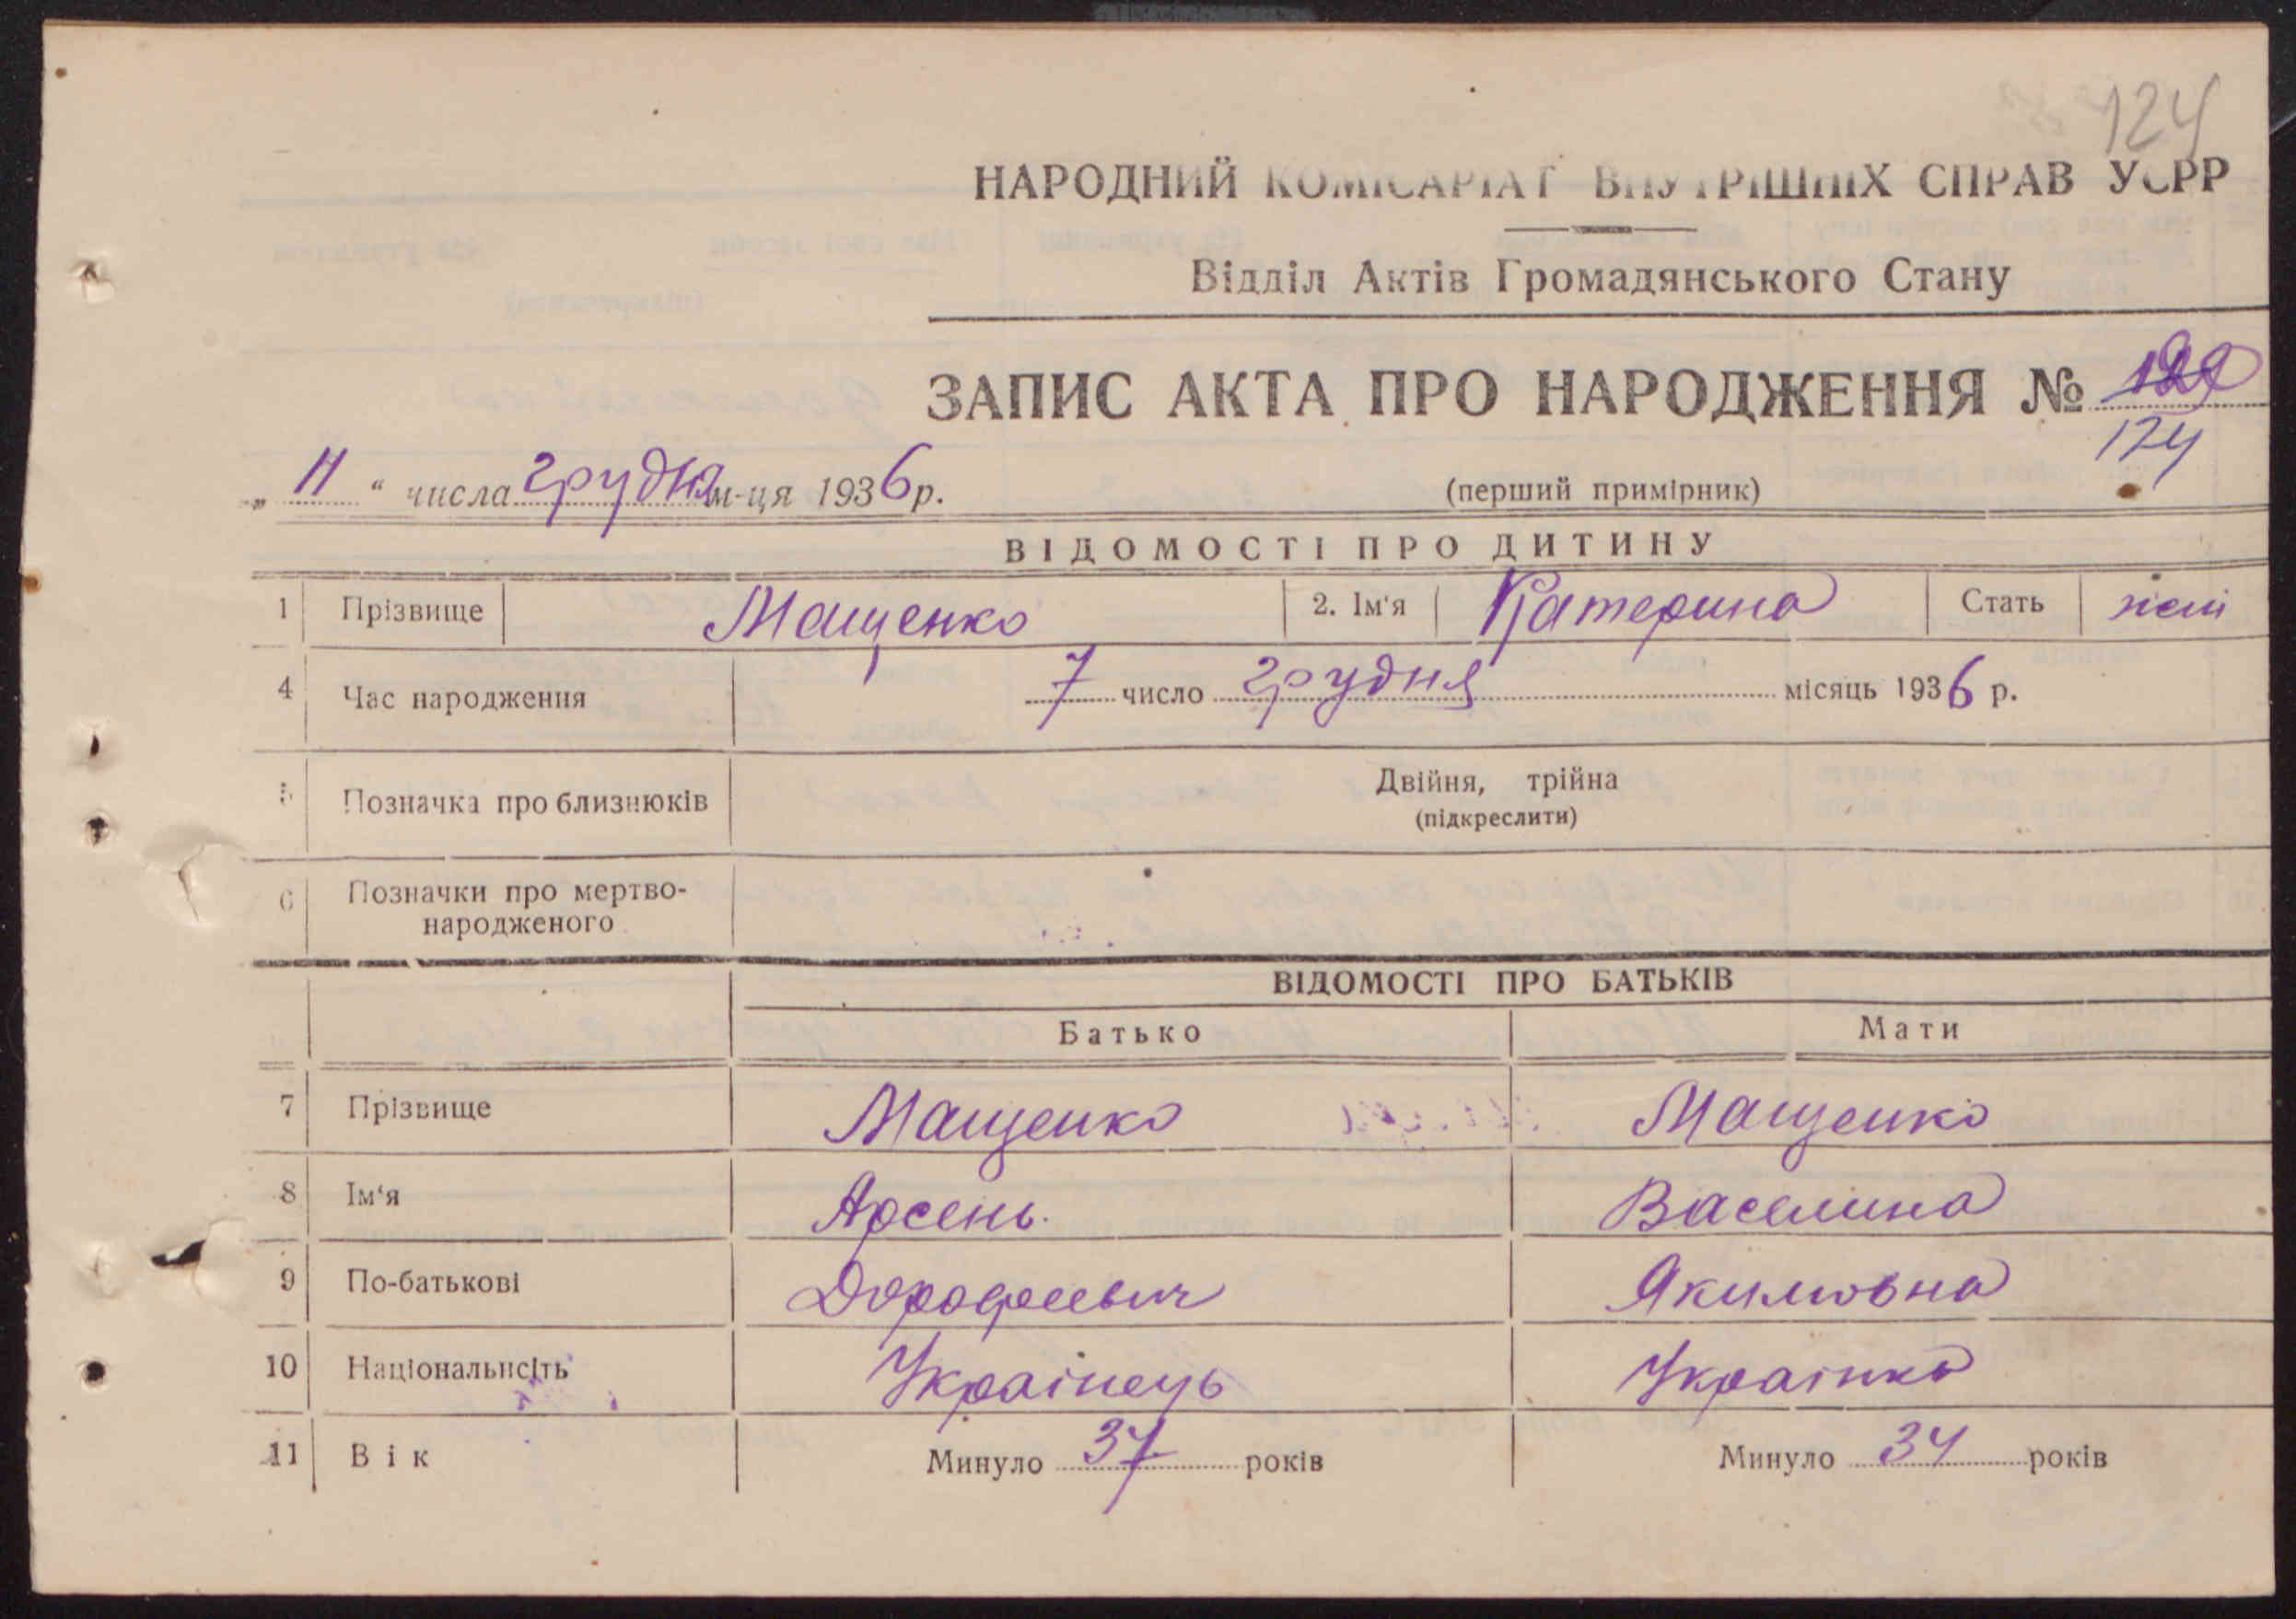 124
НАРОДНИЙ КОМІСАРІАТ ВНУТРІШНІХ СПРАВ УСРР
Відділ Актів Громадянського Стану
ЗАПИС АКТА ПРО НАРОДЖЕННЯ №
124
„ 11 “ числа грудня м-ця 1936 р.
(перший примірник)
ВІДОМОСТІ ПРО ДИТИНУ
1 Прізвище Мащенко 2. Ім'я Катерина Стать жен
4 Час народження 7 число грудня місяць 1936 р.
5 Позначка про близнюків Двійня, трійна
(підкреслити)
6 Позначки про мертво-
народженого
ВІДОМОСТІ ПРО БАТЬКІВ
Батько Мати
7 Прізвище Мащенко Мащенко
8 Ім‘я Арсень Васелина
9 По-батькові Дорофеевич Якимовна
10 Національнсіть Українець Українка
11 Вік Минуло 37 років Минуло 34 років